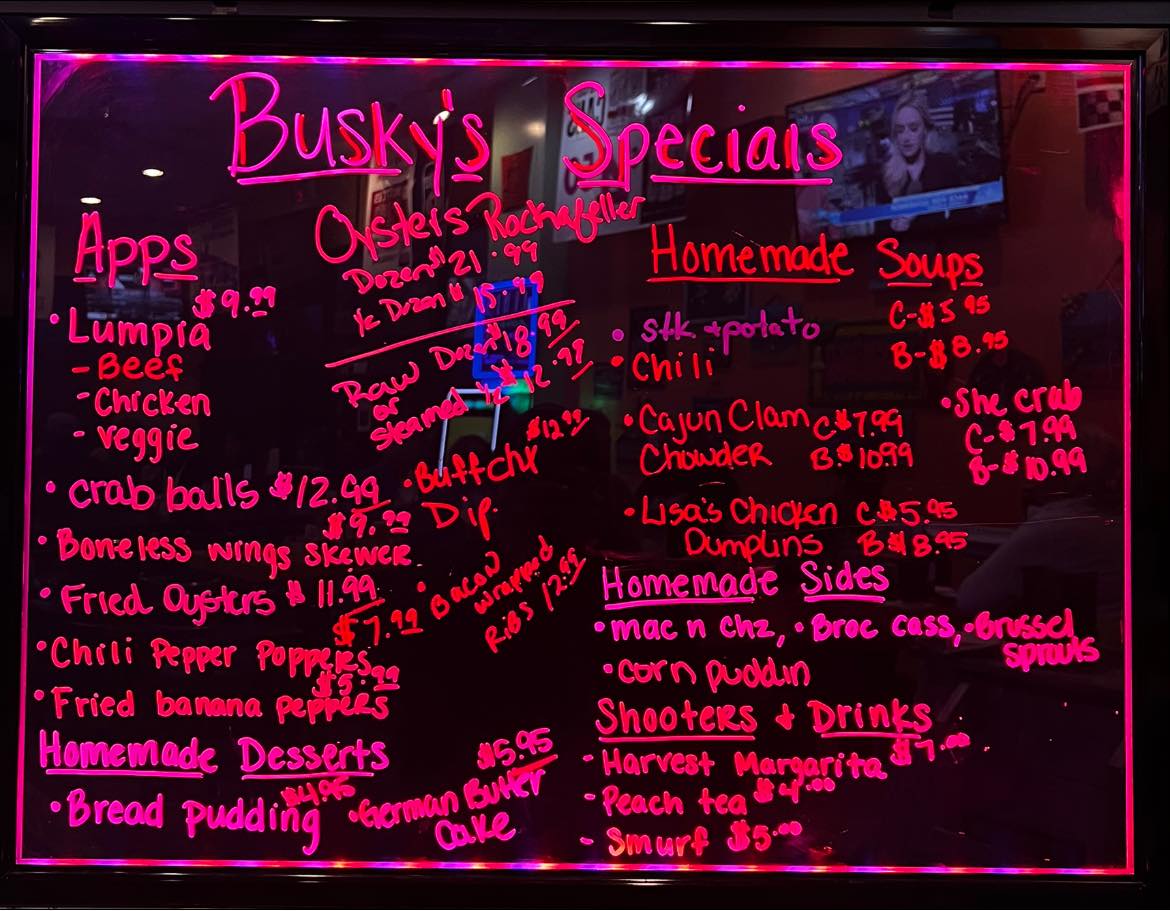 Busky's Specials
Apps
$9.99
• Lumpia
- Beef
- Chicken
- veggie
• crab balls $12.99
$9.99
• Boneless wings skewer
• Fried Oysters $11.99
$7.99
• Chili Pepper Poppers
$5.99
• Fried banana peppers
Oysters Rockafeller
Dozen $21.99
½ Dozen $15.99
Raw Dozen $18.99
or
Steamed ½ $12.99
$12.99
• Buff chx
Dip
• Bacon
wrapped
Ribs 12.99
Homemade Desserts
• Bread pudding $4.95
$5.95
• German Butter
Cake
Homemade Soups
C-$5.95
B-$8.95
• stk + potato
• Chili
• Cajun Clam C$7.99
Chowder B.$10.99
• She crab
C-$7.99
B-$10.99
• Lisa's Chicken C$5.95
Dumplins B$8.95
Homemade Sides
• mac n chz, • Broc cass, • Brussel
sprouts
• corn puddin
Shooters + Drinks
- Harvest Margarita $7.00
- Peach tea $4.00
- Smurf $5.00